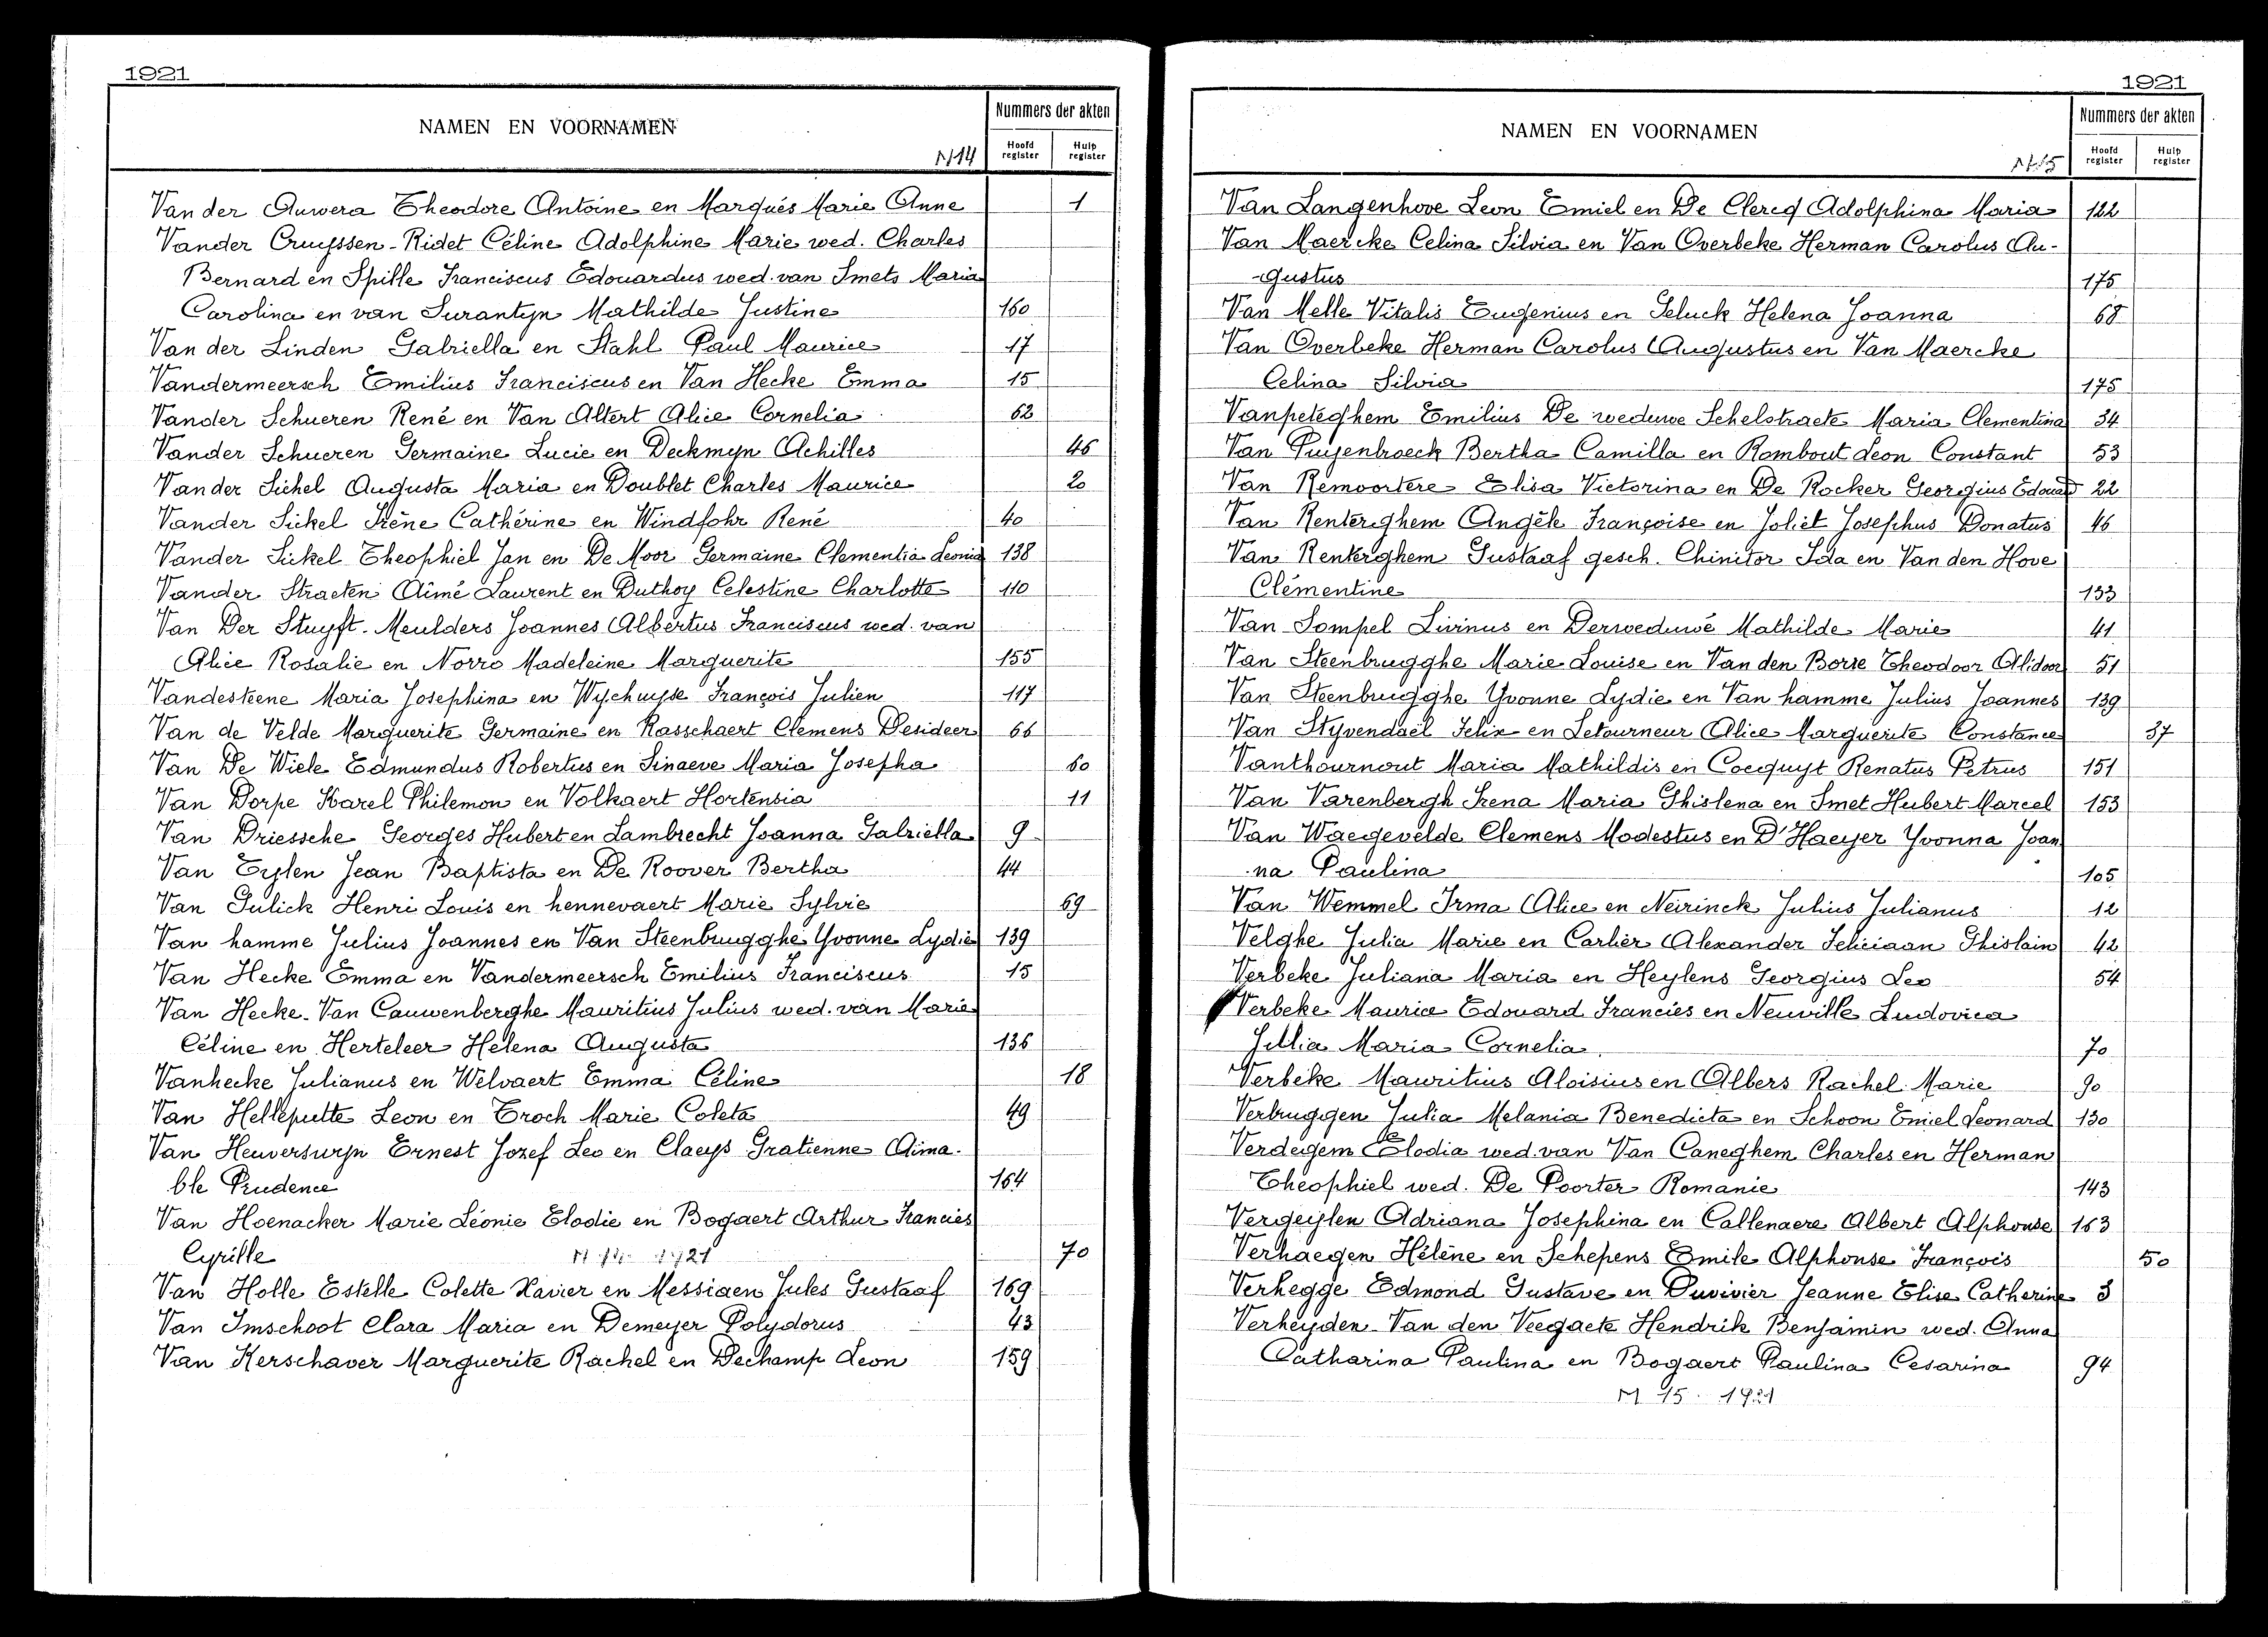 1921
NAMEN EN VOORNAMEN
Nummers der akten
Hoofd register
Hulp register
M14
Van der Auwera Theodore Antoine en Marqués Marie Anne 1
Vander Cruyssen-Ridet Céline Adolphine Marie wed. Charles
Bernard en Spille Franciscus Edouardus wed. van Smets Maria
Carolina en van Surantyn Mathilde Justine 160
Van der Linden Gabriella en Stahl Paul Maurice 17
Vandermeersch Emilius Franciscus en Van Hecke Emma 15
Vander Schueren René en Van Altert Alice Cornelia 62
Vander Schueren Germaine Lucie en Deckmyn Achilles 46
Van der Sichel Augusta Maria en Doublet Charles Maurice 20
Vander Sickel Irène Cathérine en Windfohr René 40
Vander Sickel Theophiel Jan en De Moor Germaine Clementia Leonia 138
Vander Straeten Aimé Laurent en Duthoy Celestine Charlotte 110
Van Der Stuyft-Meulders Joannes Albertus Franciscus wed. van
Alice Rosalie en Norro Madeleine Marguerite 155
Vandesteene Maria Josephina en Wychuyse François Julien 117
Van de Velde Marguerite Germaine en Rasschaert Clemens Desideer 66
Van De Wiele Edmundus Robertus en Sinaeve Maria Josepha 60
Van Dorpe Karel Philemon en Volkaert Hortensia 11
Van Driessche Georges Hubert en Lambrecht Joanna Gabriella 9
Van Eyslen Jean Baptista en De Roover Bertha 44
Van Gulick Henri Louis en hennevaert Marie Sylvie 69
Van hamme Julius Joannes en Van Steenbrugghe Yvonne Lydie 139
Van Hecke Emma en Vandermeersch Emilius Franciscus 15
Van Hecke-Van Cauwenberghe Mauritius Julius wed. van Marie
Céline en Herteleer Helena Augusta 136
Vanhecke Julianus en Welvaert Emma Céline 18
Van Helleputte Leon en Troch Marie Coleta 49
Van Heuverswyn Ernest Jozef Leo en Claeys Gratienne Aima-
ble Prudence 164
Van Hoenacker Marie Léonie Elodie en Bogaert Arthur Francies
Cyrille 70
Van Holle Estelle Colette Xavier en Messiaen Jules Gustaaf 169
Van Imschoot Clara Maria en Demeyer Polydorus 43
Van Kerschaver Marguerite Rachel en Dechamp Leon 159
1921
NAMEN EN VOORNAMEN
Nummers der akten
Hoofd register
Hulp register
M15
Van Langenhove Leon Emiel en De Clercq Adolphina Maria 122
Van Maercke Celina Silvia en Van Overbeke Herman Carolus Au-
-gustus 175
Van Melle Vitalis Eugenius en Seluck Helena Joanna 68
Van Overbeke Herman Carolus Augustus en Van Maercke
Celina Silvia 175
Vanpeteghem Emilius De weduwe Schelstraete Maria Clementina 34
Van Puyenbroeck Bertha Camilla en Rombout Leon Constant 53
Van Remoortere Elisa Victorina en De Rocker Georgius Edouard 22
Van Renterghem Angèle Françoise en Joliet Josephus Donatus 46
Van Renterghem Gustaaf gesch. Chinitor Ida en Van den Hove
Clémentine 133
Van Sompel Livinus en Derweduwé Mathilde Marie 41
Van Steenbrugghe Marie Louise en Van den Borre Theodoor Alidoor 51
Van Steenbrugghe Yvonne Lydie en Van hamme Julius Joannes 139
Van Styvendael Felix en Letourneur Alice Marguerite Constance 37
Vanthournout Maria Mathildis en Cocquyt Renatus Petrus 151
Van Varenbergh Irena Maria Ghislena en Smet Hubert Marcel 153
Van Waegevelde Clemens Modestus en D'Haeyer Yvonna Joan
na Paulina 105
Van Wemmel Irma Alice en Neirinck Julius Julianus 12
Velghe Julia Marie en Carlier Alexander Feliciaan Ghislain 42
Verbeke Juliana Maria en Heylens Georgius Leo 54
Verbeke Maurice Edouard Francies en Neuville Ludovica
Jullia Maria Cornelia 70
Verbeke Mauritius Aloisius en Albers Rachel Marie 90
Verbruggen Julia Melania Benedicta en Schoon Emiel Leonard 130
Verdegem Elodia wed. van Van Caneghem Charles en Herman
Theophiel wed. De Poorter Romanie 143
Vergeylen Adriana Josephina en Callenaere Albert Alphonse 163
Verhaegen Hélène en Schepens Emile Alphonse François 50
Verhegge Edmond Gustave en Duvivier Jeanne Elise Catherine 3
Verheyden-Van den Veegaete Hendrik Benjamin wed. Anna
Catharina Paulina en Bogaert Paulina Cesarina 94
M 15 1921